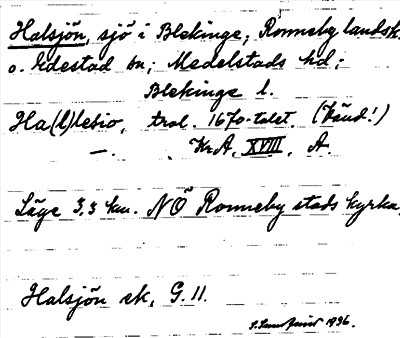 Halsjön, sjö i Blekinge, Ronneby landsk.
o. Edestad sn; Medelstads hd;
Blekinge l.
Ha(l)lesio, trol. 1670-talet. (Känd!)
—. Kr.A, XVIII, A.
Läge 3,3 km. NÖ Ronneby stads kyrka,
Halsjön ek, G. 11.
1936.